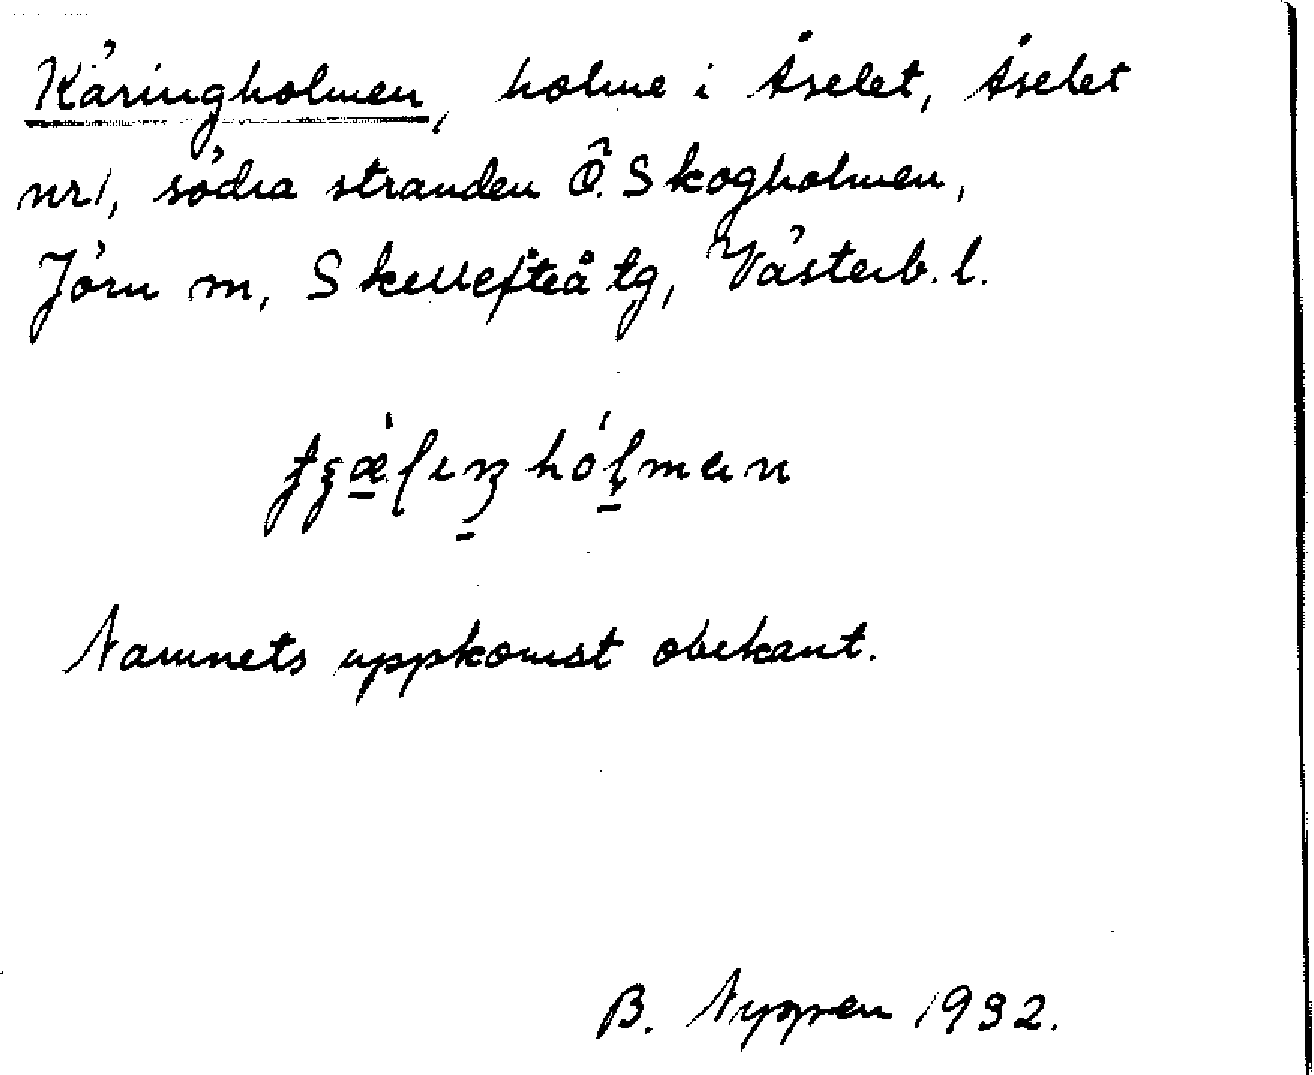 Käringholmen, holme i Åselet, Åselet
nr 1, södra stranden Ö. Skogholmen,
Jörn sn, Skellefteå tg, Västerb. l.
Namnets uppkomst obekant.
B. Nygren 1932.